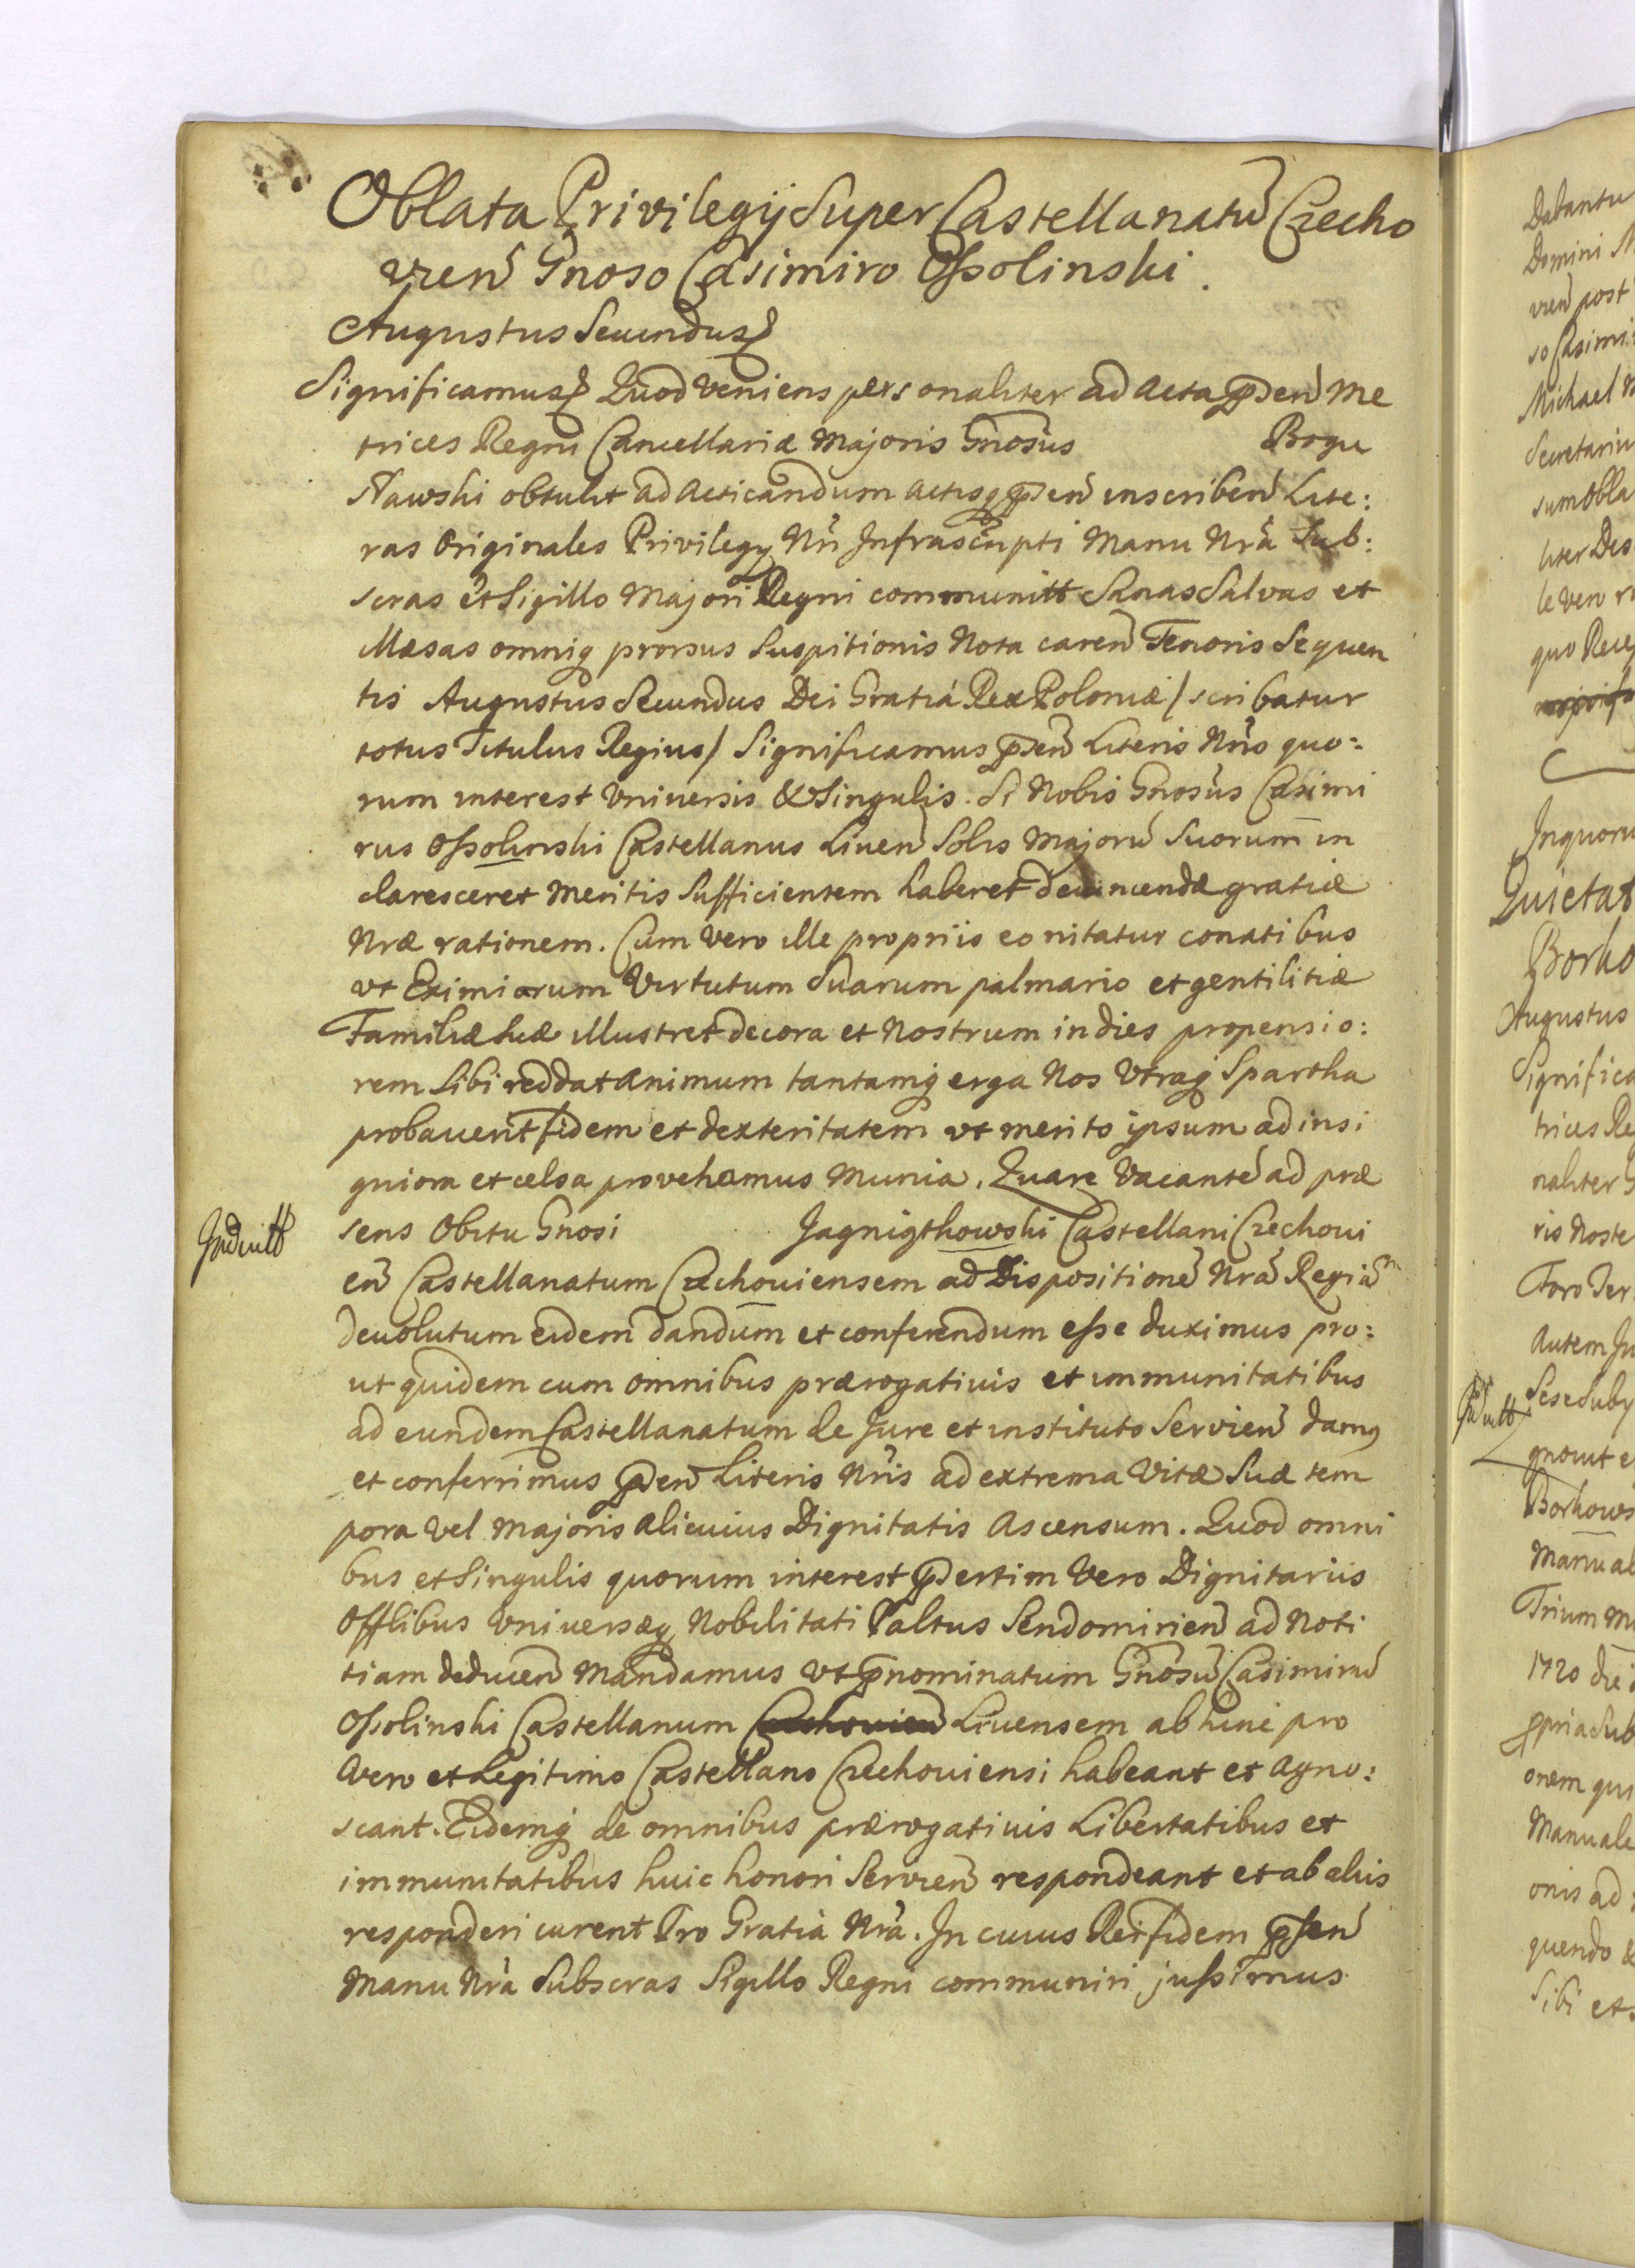 Oblata Privilegij Super Castellanatū Czecho
vien̄ Gnoso Casimiro Ossolinski.
Augustus Secundus
Significamus Quod Veniens personaliter ad Acta p̄sen̄ Me
trices Regni Cancellariæ Majoris Gnosus Bogu
sławski obtulit ad Acticandum Actisq p̄sen̄ inscriben̄ Lite:
ras Originales Privilegy Nri Infrascripti Manu Nrā Sub:
scras et Sigillo Majori Regni communitt Sanas Salvas et
Illæsas omniq prorsus Suspitionis Nota caren̄ Tenoris Sequen
tis Augustus Secundus Dei Gratiá Rex Poloniæ / scribatur
totus Titulus Regius / Significamus p̄sen̄ Literis Nris quo:
rum interest Vniversis & Singulis. Si Nobis Gnosus Casimi
rus Ossolinski Castellanus Liuen̄ Solis Majorū Suorum in
claresceret Meritis Sufficientem haberet gratiæ
Nræ rationem. Cum Vero ille propriis eo nitatur conatibus
vt Eximiarum Virtutum Suarum palmario et gentilitiæ
Familiæ Suæ illustret decora et Nostrum in dies propensio:
rem Sibi reddat animum tantamq erga Nos Vtraq Spartha
probauerit fidem et dexteritatem vt merito ipsum ad insi
gniora et celsa provehamus Munia. Quare Vacante ad præ
sens Obitu Gnosi Jagnigthowski Castellani Czechoui
en̄ Castellanatum Czechouiensem ad Dispositionē Nrā Regiam
deuolutum eidem dandum et conferendum esse duximus pro:
ut quidem cum omnibus prærogatiuis et immunitatibus
ad eundem Castellanatum de Jure et instituto Servien̄ damq
et conferrimus p̄sen̄ Literis Nris ad extrema Vitæ Suæ tem
pora vel Majoris Alicuius Dignitatis Ascensum. Quod omni
bus et Singulis quorum interest p̄sertim Vero Dignitariis
Offlibus Vniversæq Nobilitati Paltus Sendomirien̄ ad Noti
tiam deducen̄ Mandamus vt p̄nominatum Gnosū Casimirū
Ossolinski Castellanum Liuensem abhinc pro
Vero et Legitimo Castellano Czechouiensi habeant et Agno:
scant. Eidemq de omnibus prærogatiuis Libertatibus et
immunitatibus huic honori Servien̄ respondeant et ab aliis
responderi curent Pro Gratiâ Nrâ. In cuius Rei fidem p̄sen̄
Manu Nrâ Subscras Sigillo Regni communiri jussimus
Induitt
Dabantu
Domini
vien̄ post
so Casimi
Michael
Secretariu
sum obla
liter Des
quo Rece
In quoru
Quietat
Borko
Augustus
Signific
trices Re
naliter
ris Noste
Foro Ter
Autem In
Sese Suby
gnouit e
Borkows
Manual
Trium
1720 die
ppria Sub
onem qui
Manuale
onis ad
quendo
Sibi et